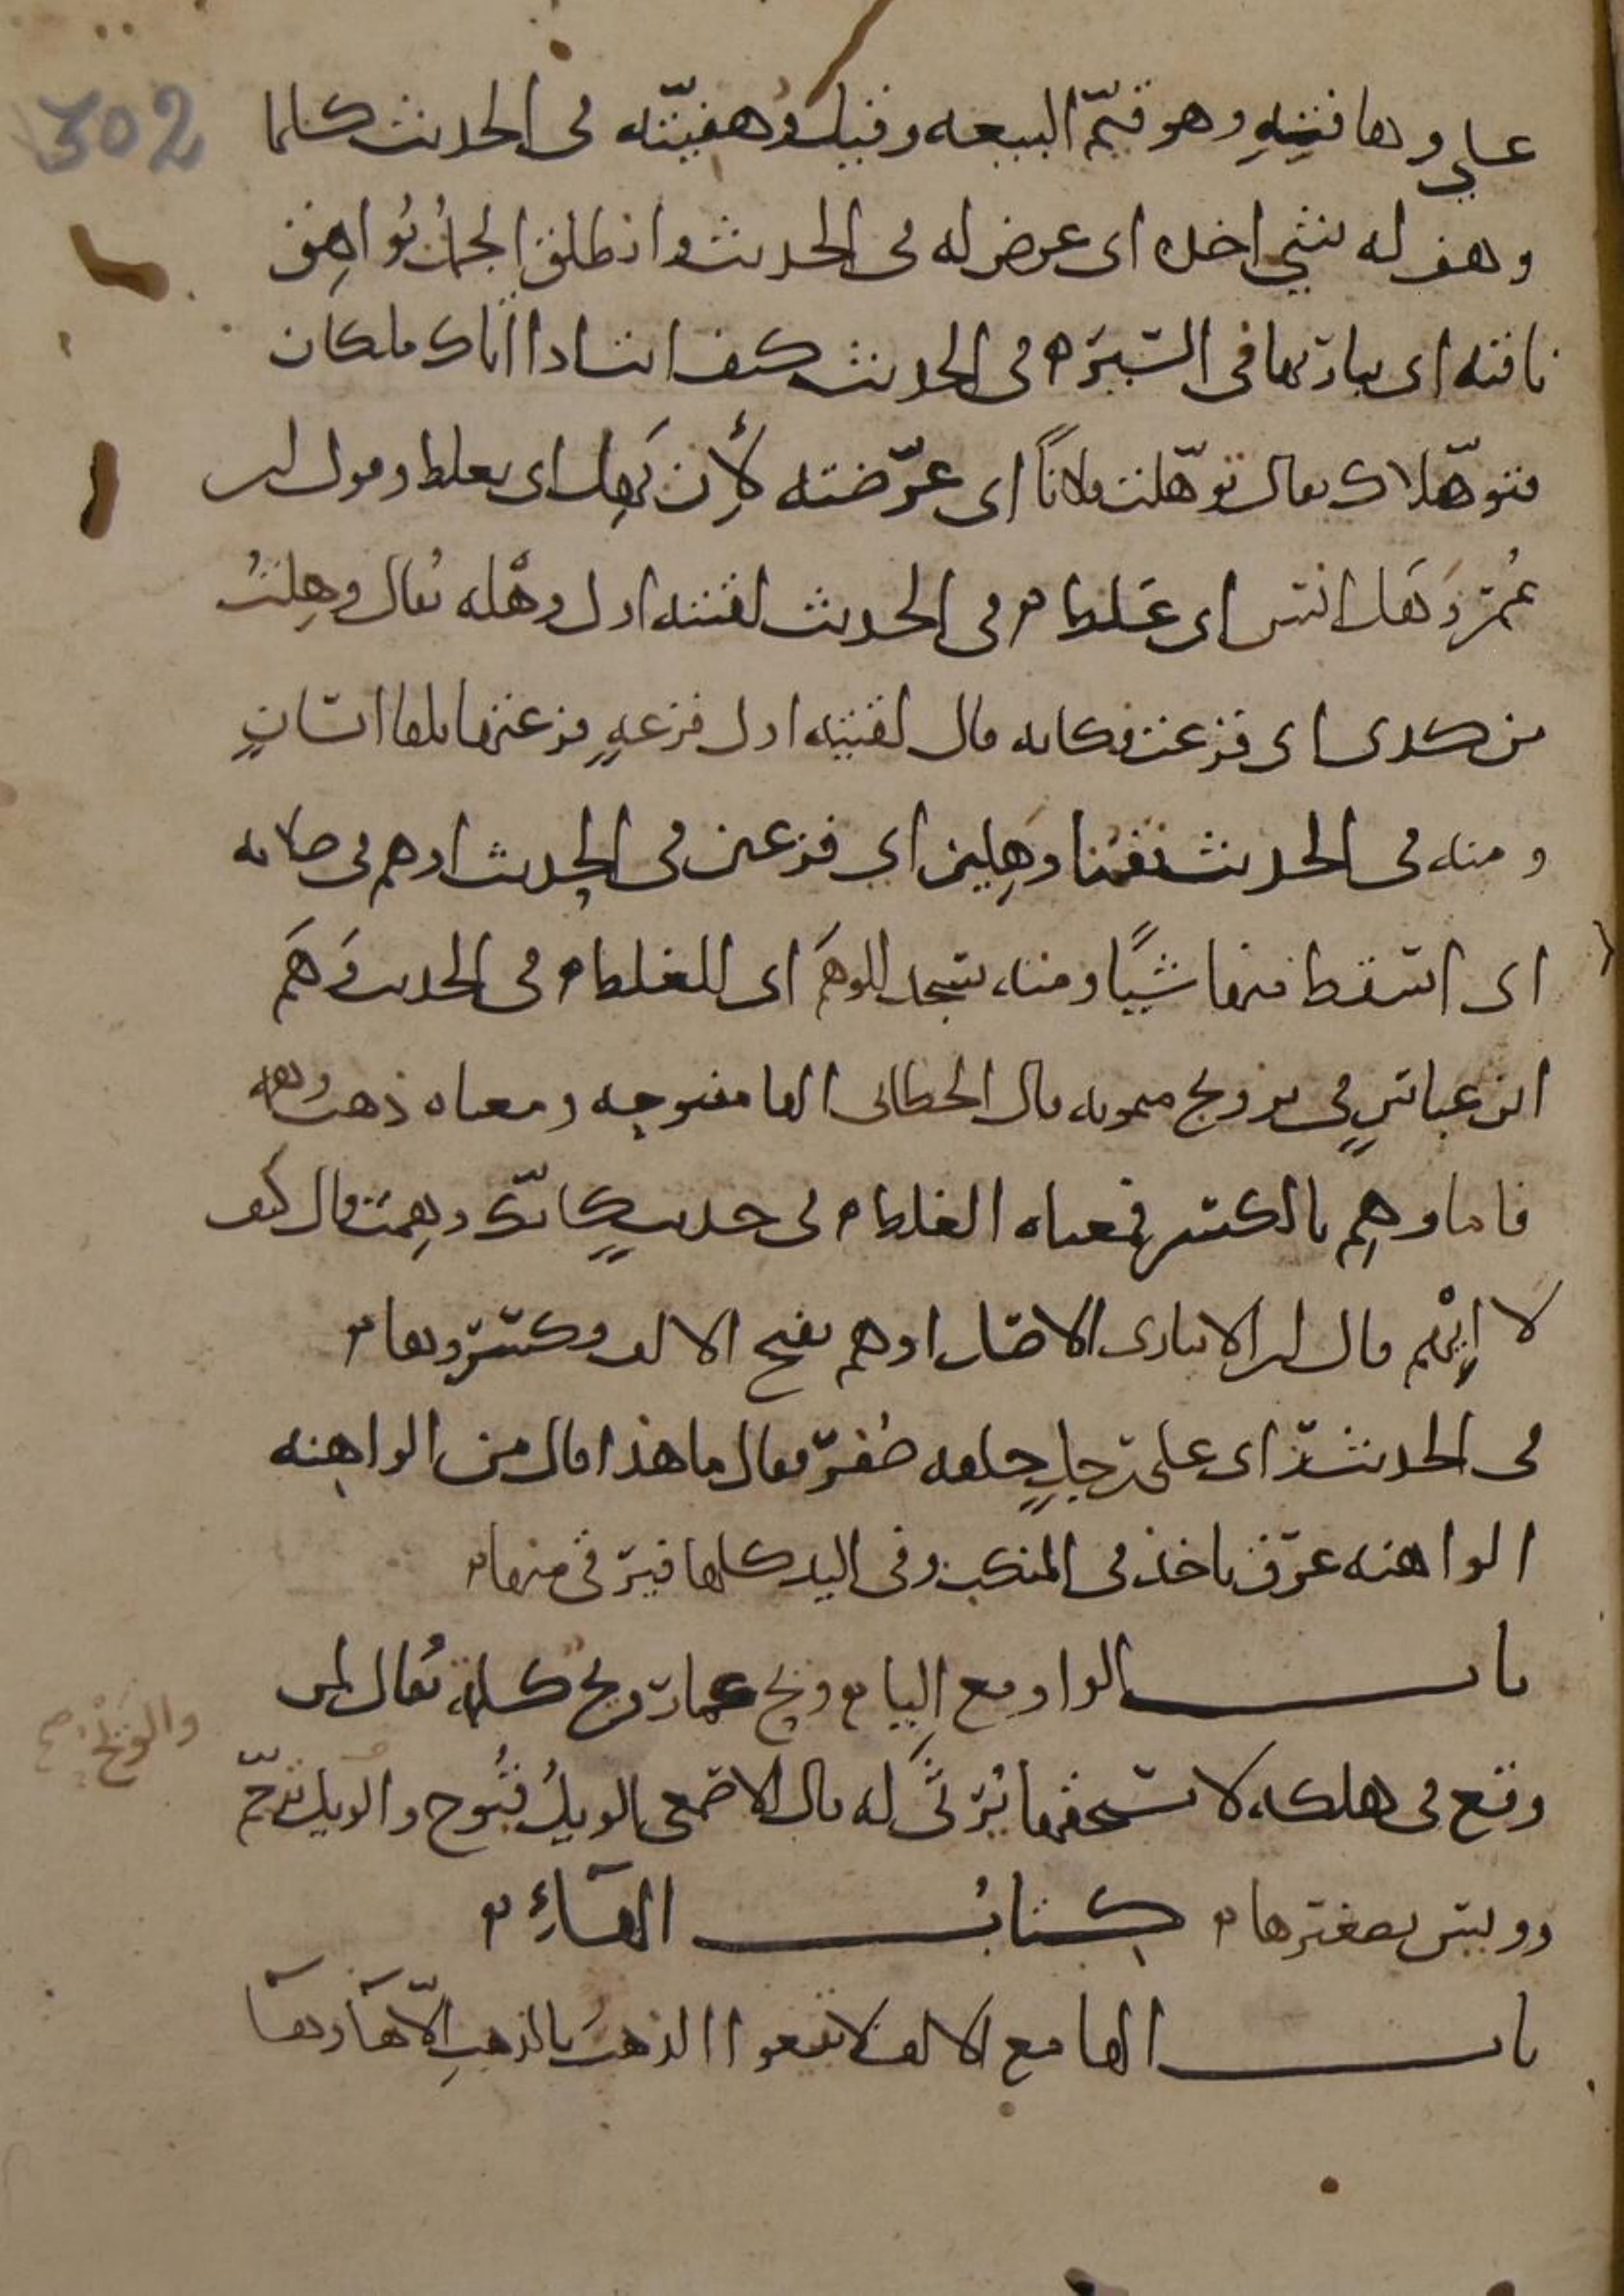 302
على وهافتيه وهو قيّم البيعه وقيل وهفيّته فى الحديث كلما
وهف له شي اخذه اى عرض له فى الحديث وانطلق الجمل تُواهِق
ناقته اى يبارىها فى السّير ه فى الحديث كيف انت اذا اتاك ملكان
فتوهّلاك يقال توهّلت فلاناً اى عرّضته لأن يَهِل اى يغلط وقول ابن
عُمر وَهَل انس اى غَلط ه فى الحديث لقيته اول وهْله يُقال وهِلتُ
من كذى اى فزعت فكانه قال لقيته اول فزعهٍ فزعتها بلقا انسانٍ
ومنه فى الحديث فقمنا وَهِلين اي فزعين فى الحديث اوهم فى صلاته
اى اسقط منها شيًا ومنه سجد للوهَم اى للغلط ه فى الحديث وَهَم
ابن عباسٍ فى تزويج ميمونه قال الخطابى الها مفتوحه ومعناه ذهب وهمه
فاما وهِم بالكسر فمعناه الغلط ه فى حديثٍ كانّك وهِمت قال كيف
لا إِيْهم قال ابن الانبارى الاصل اوهم بفتح الالف وكسروها ه
فى الحديث راى على رجلٍ حلقه صُفر فقال ما هذا قال من الواهِنه
الواهنه عرق ياخذ فى المنكب وفى اليد كلها فيرقى منها ه
باب الواو مع اليا ه ويح عمار ويح كلمة يُقال لمن
والوَيْح صح
وقع فى هلكه لا يستحقها يُرثَى له قال الاصمعى الويلُ قُبُوح والويل ترحّم
وويس تصغيرها ه كتاب الهاءِ ه
باب الها مع الالف لا تبيعوا الذهبَ بالذهبِ الّا هآ وهآ